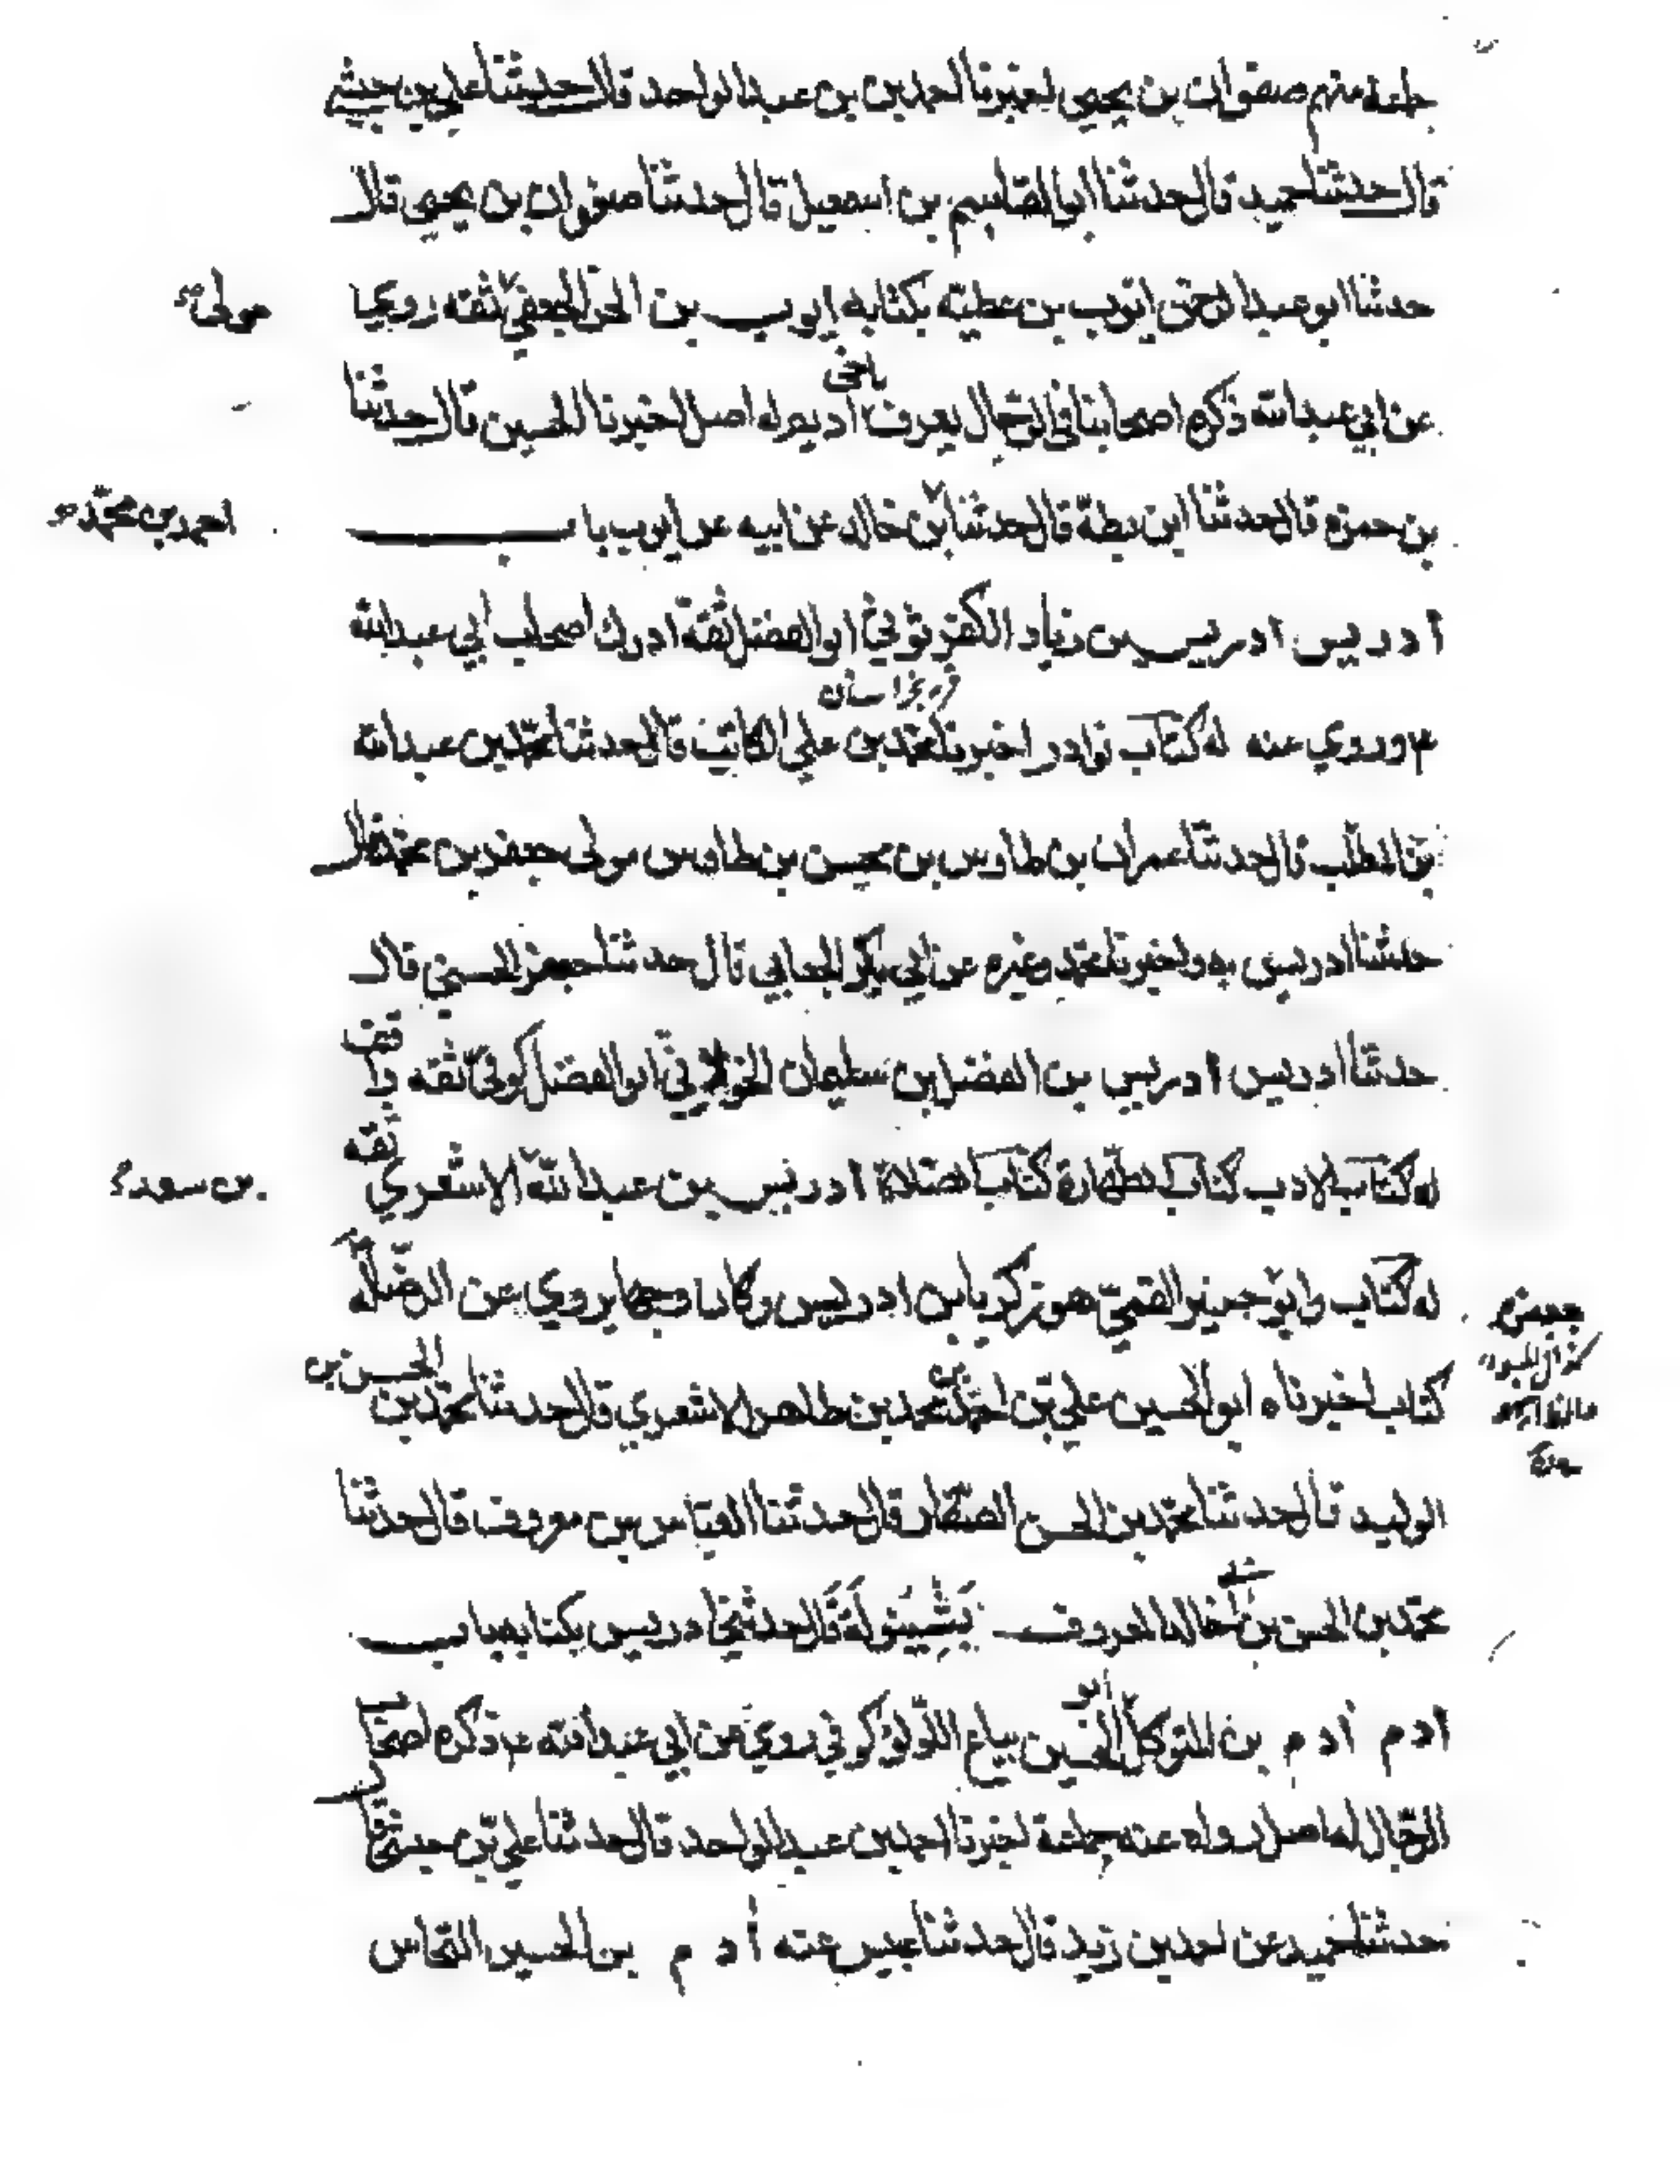 جماعة منهم صفوان بن يحيى اخبرنا احمد بن عبد الواحد قال حدثنا علي بن حبشي
قال حدثنا حميد قال حدثنا ابو القاسم بن اسمعيل قال حدثنا صفوان بن يحيى قال
حدثنا ابو عبد الرحمن ايوب بن عطية بكتابه ايوب بن الحر الجعفي ثقه روي
مولى
عن ابي عبد الله ذكره اصحابنا في الرجال يعرف باخي اديم له اصل اخبرنا الحسين قال حدثنا
بن حمزه قال حدثنا ابن بطة قال حدثنا بن خالد عن ابيه عن ايوب باب
احمد بن محمد
ادريس ادريس بن زياد الكفرتوثي ابو الفضل ثقة ادرك اصحاب ابي عبد الله
قريه بخراسان
م وروي عنه له كتاب نوادر اخبرنا محمد بن علي الكاتب قال حدثنا محمد بن عبد الله
بن المطلب قال حدثنا عمران بن طاوس بن محسن بن طاوس مولى جعفر بن محمد قال
حدثنا ادريس به واخبرنا محمد وغيره عن ابي بكر الجعابي قال حدثنا جعفر الحسني قال
حدثنا ادريس ادريس بن الفضل بن سليمان الخولاني ابو الفضل كوفي ثقه واقف
له كتاب الادب كتاب الطهارة كتاب الصلاة ادريس بن عبد الله الاشعري ثقه
بن سعد
له كتاب وابو جرير القمي هو زكريا بن ادريس وكان وجها يروي عن الرضا له
كتاب اخبرناه ابو الحسين علي بن احمد بن محمد بن طاهر الاشعري قال حدثنا محمد بن الحسن بن
الوليد قال حدثنا محمد بن الحسن الصفار قال حدثنا العباس بن معروف قال حدثنا
محمد بن الحسن بن ابي خالد المعروف بشينولة قال حدثني ادريس بكتابه باب
ادم ادم بن المتوكل ابو الحسين بياع اللؤلؤ كوفي روي عن ابي عبد الله م ذكره اصحاب
الرجال له اصل رواه عنه جماعة اخبرنا احمد بن عبد الواحد قال حدثنا علي بن حبشي قال
حدثنا حميد عن احمد بن زيد قال حدثنا عبيس عنه ادم بن الحسين النخاس